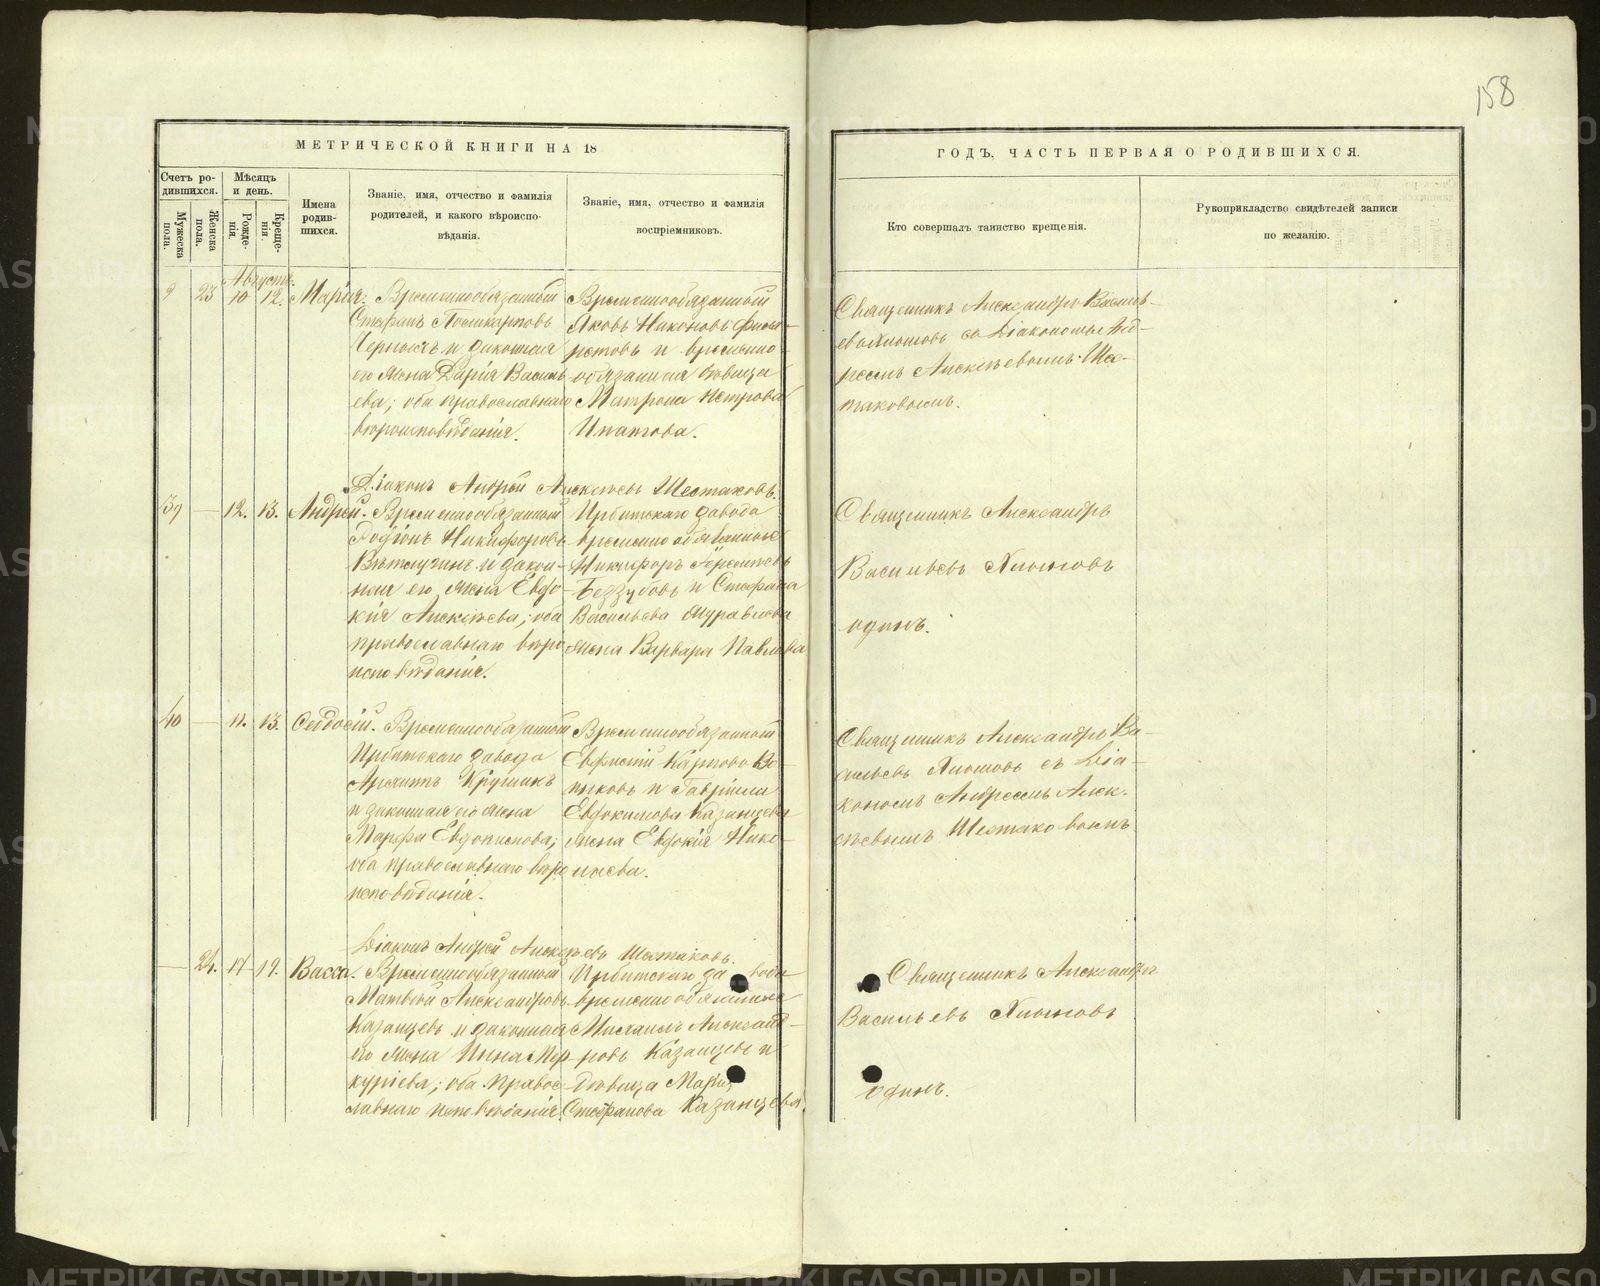 158
МЕТРИЧЕСКОЙ КНИГИ НА 18
ГОДЪ, ЧАСТЬ ПЕРВАЯ О РОДИВШИХСЯ.
Счетъ ро-
дившихся.
Мужеска
пола.
Женска
пола.
Мѣсяцъ
и день.
Рожде-
нія.
Креще-
нія.
Имена
родив-
шихся.
Званіе, имя, отчество и фамилія
родителей, и какого вѣроиспо-
вѣданія.
Званіе, имя, отчество и фамилія
воспріемниковъ.
Кто совершалъ таинство крещенія.
Рукоприкладство свидѣтелей записи
по желанію.
Августъ.
23 10 12. Марія.
Временнообязанный
Стефанъ Поликарповъ
и законная
его жена Дарія Василь-
ева; оба православнаго
вѣроисповѣданія.
Временнообязанный
Яковъ Никоновъ
и временно-
обязанная дѣвица
Матрона Петрова
Ипатова.
Священникъ Александръ Василь-
евъ Хлыновъ съ Діакономъ Анд-
реемъ Алексѣевымъ Шес-
таковымъ.
Діаконъ Андрей Алексѣевъ Шестаковъ.
39 — 12. 13. Андрей.
Временнообязанный
Родіонъ Никифоровъ
и закон-
ная его жена Евдо-
кія Алексѣева; оба
православнаго вѣро-
исповѣданія.
Ирбитскаго завода
временно обязанные
Никифоръ
Беззубовъ и Стефана
Васильева Муравлева
жена Варвара Павлова
Священникъ Александръ
Васильевъ Хлыновъ
одинъ.
40 — 11. 13. Ѳеодосій.
Временнообязанный
Ирбитскаго завода
и законная его жена
Марѳа Евдокимова;
оба православнаго вѣро
исповѣданія.
Временнообязанный
Евфисій Карпово
и Гавріила
Евдокимова Казанцева
жена Евдокія Нико-
лаева.
Священникъ Александръ Ва-
сильевъ Хлыновъ съ Діа-
кономъ Андреемъ Алек-
сѣевымъ Шестаковымъ
Діаконъ Андрей Алексѣевъ Шестаковъ.
— 24. 17 19. Васса.
Временнообязанный
Матвѣй Александровъ
Казанцевъ и законная
его жена Анна Мер-
куріева; оба правос-
лавнаго исповѣданія
Ирбитскаго завода
временно обязанные
Михаилъ Александ-
ровъ Казанцевъ и
Дѣвица Марія
Стефанова Казанцева.
Священникъ Александръ
Васильевъ Хлыновъ
одинъ.
METRIKI.GASO-URAL.RU